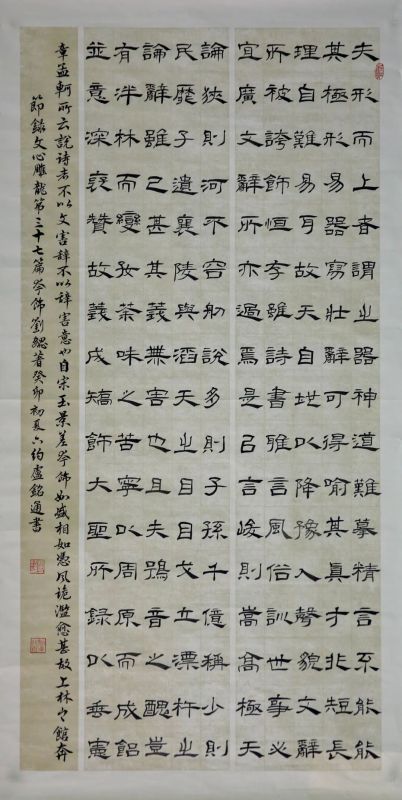 夫形而上者謂之器神道難摹精言不能能
其極形易器寫壯辭可得喻其真才非短長
理自難易耳故天自地以降豫入聲貌文辭
所被誇飾恒存雖詩書雅言風俗訓世事必
宜廣文辭所亦過焉是以言峻則嵩高極天
論狹則河不容舠說多則子孫千億稱少則
民靡孑遺襄陵與滔天之目目戈立漂杵之
論辭雖已甚其義無害也且夫鴞音之醜豈
有泮林而變好荼味之苦寧以周原而成飴
並意深褒贊故義成矯飾大聖所錄以垂憲
章孟軻所云說詩者不以文害辭不以辭害意也自宋玉景差夸飾始盛相如憑風詭濫愈甚故上林之館奔
節錄文心雕龍第三十七篇夸飾劉勰著癸卯初夏六約盧銘通書